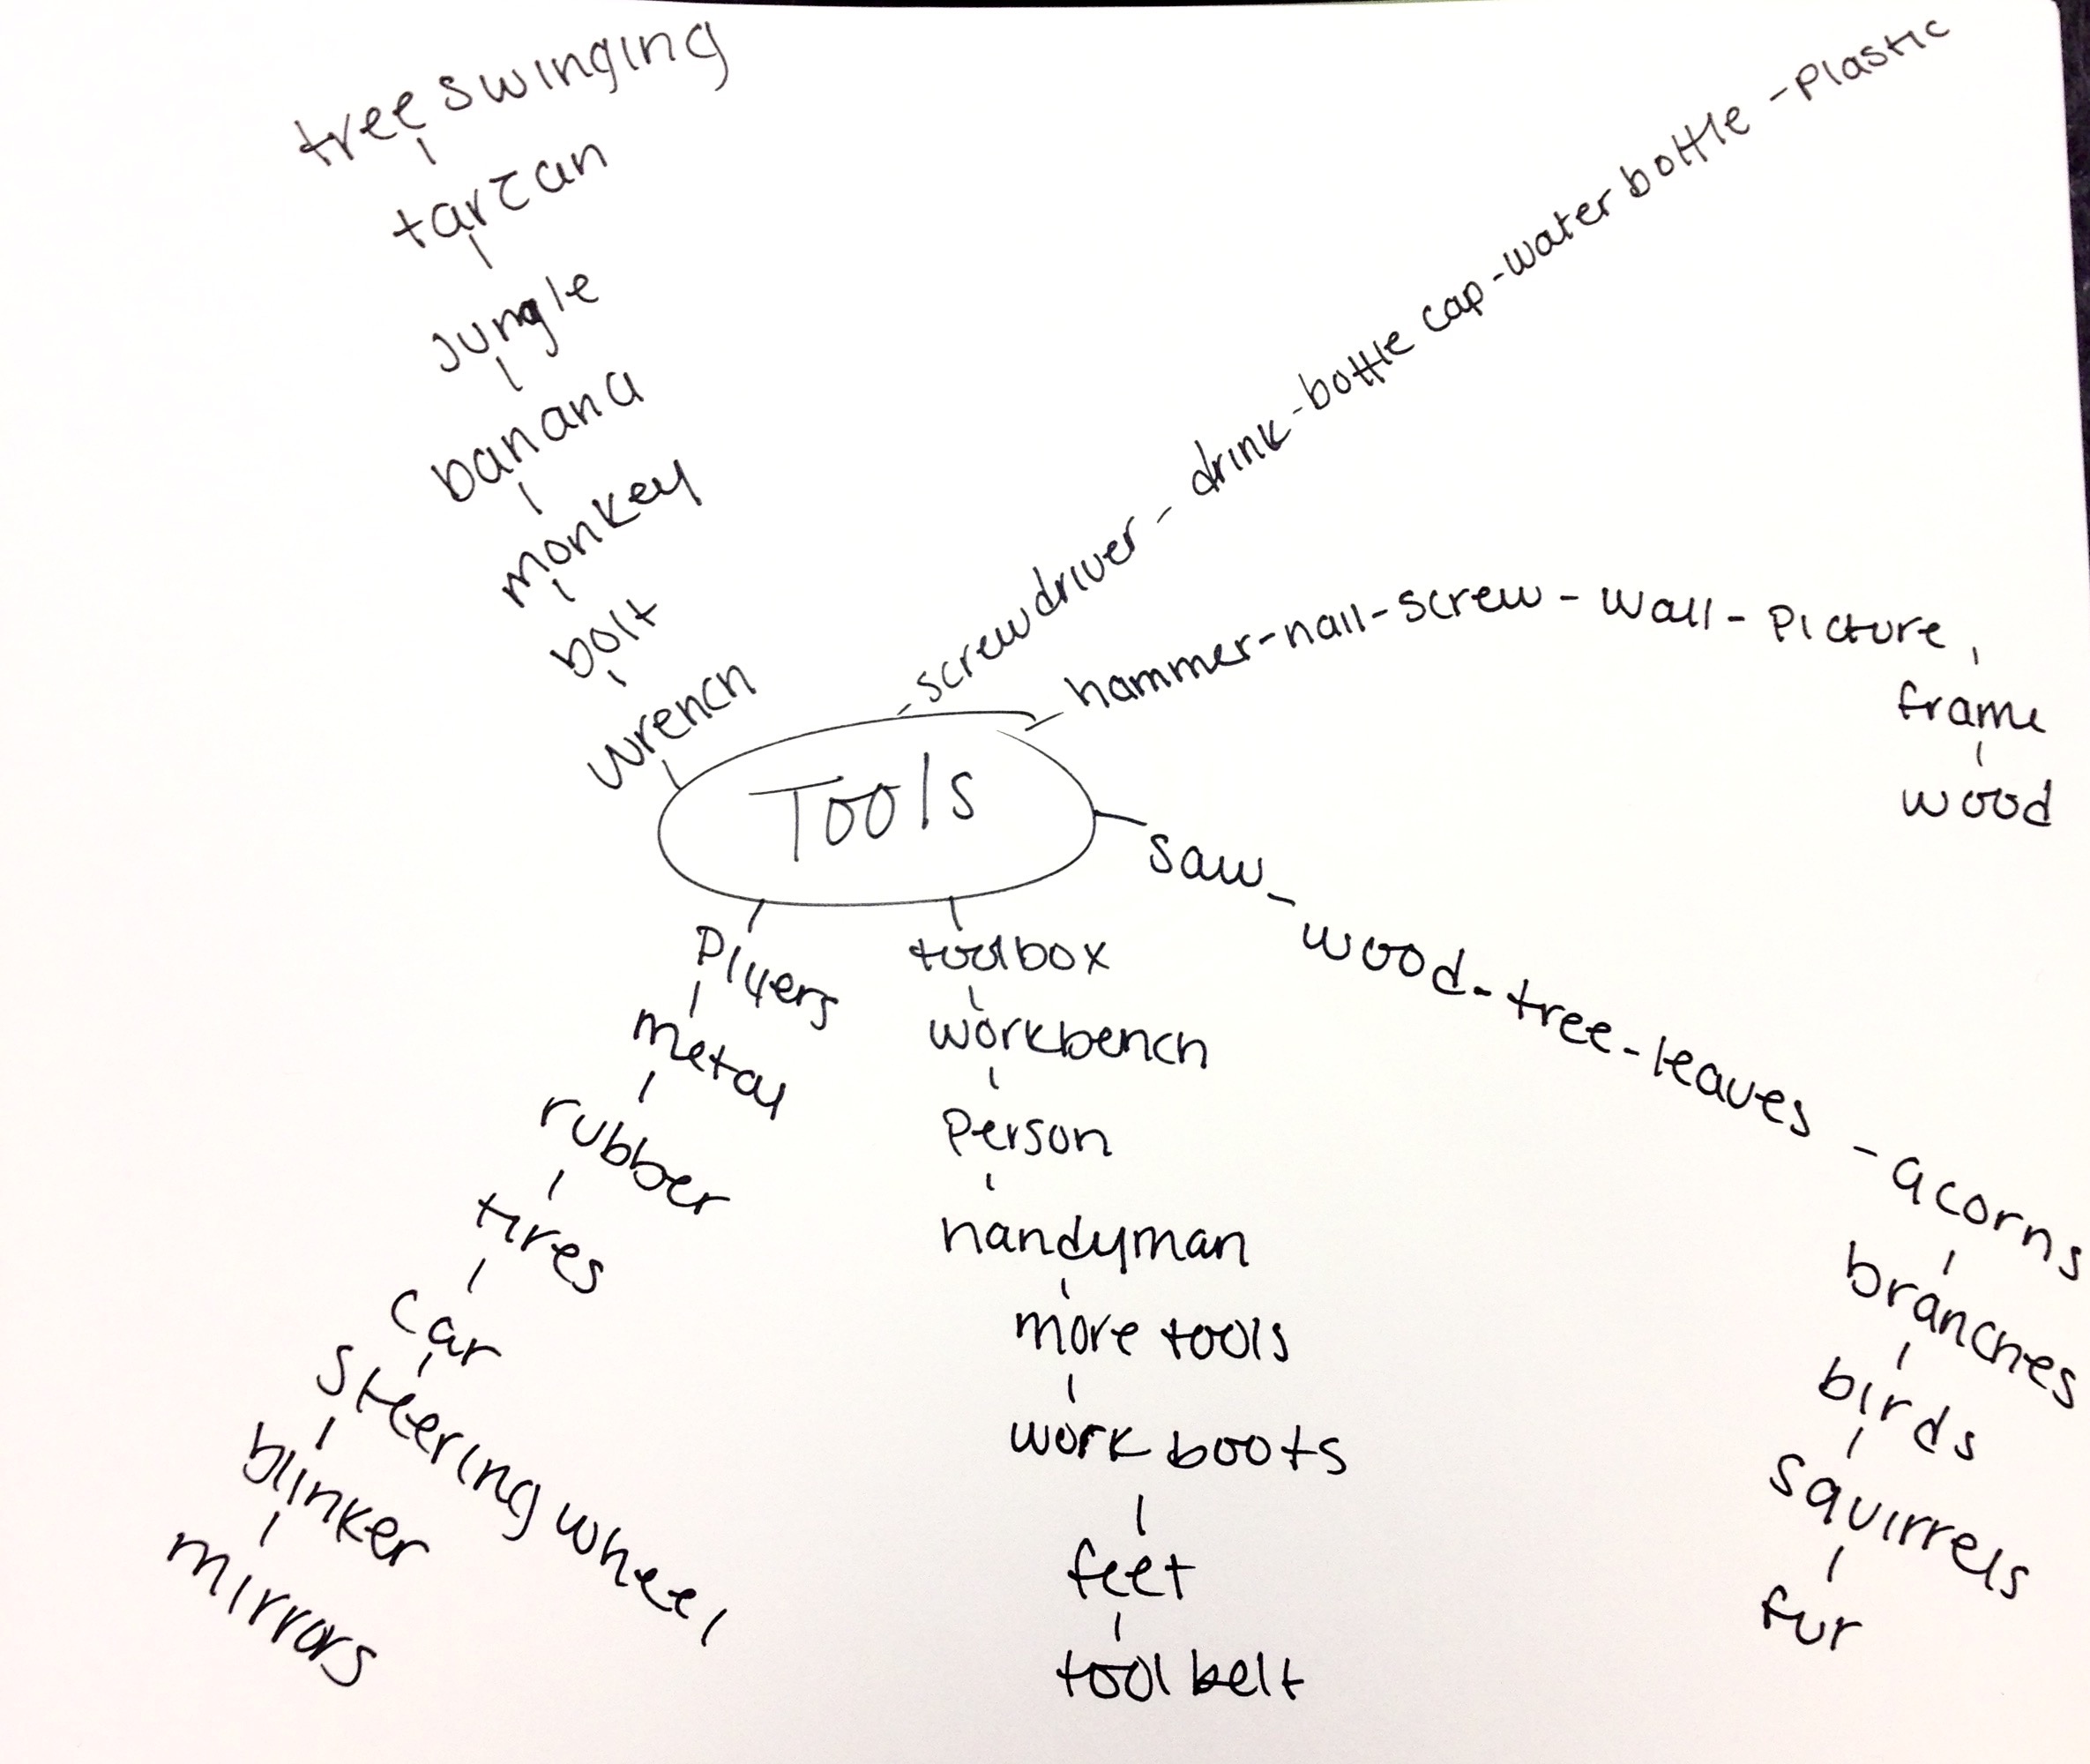 Tools
wrench
bolt
monkey
banana
jungle
tarzan
tree swinging
-screwdriver - drink - bottle cap - water bottle - Plastic
hammer - nail - screw - wall - Picture
frame
wood
saw - wood - tree - leaves - acorns
branches
birds
squirrels
fur
toolbox
workbench
Person
handyman
more tools
work boots
feet
tool belt
Plyers
metal
rubber
tires
car
steering wheel
blinker
mirrors